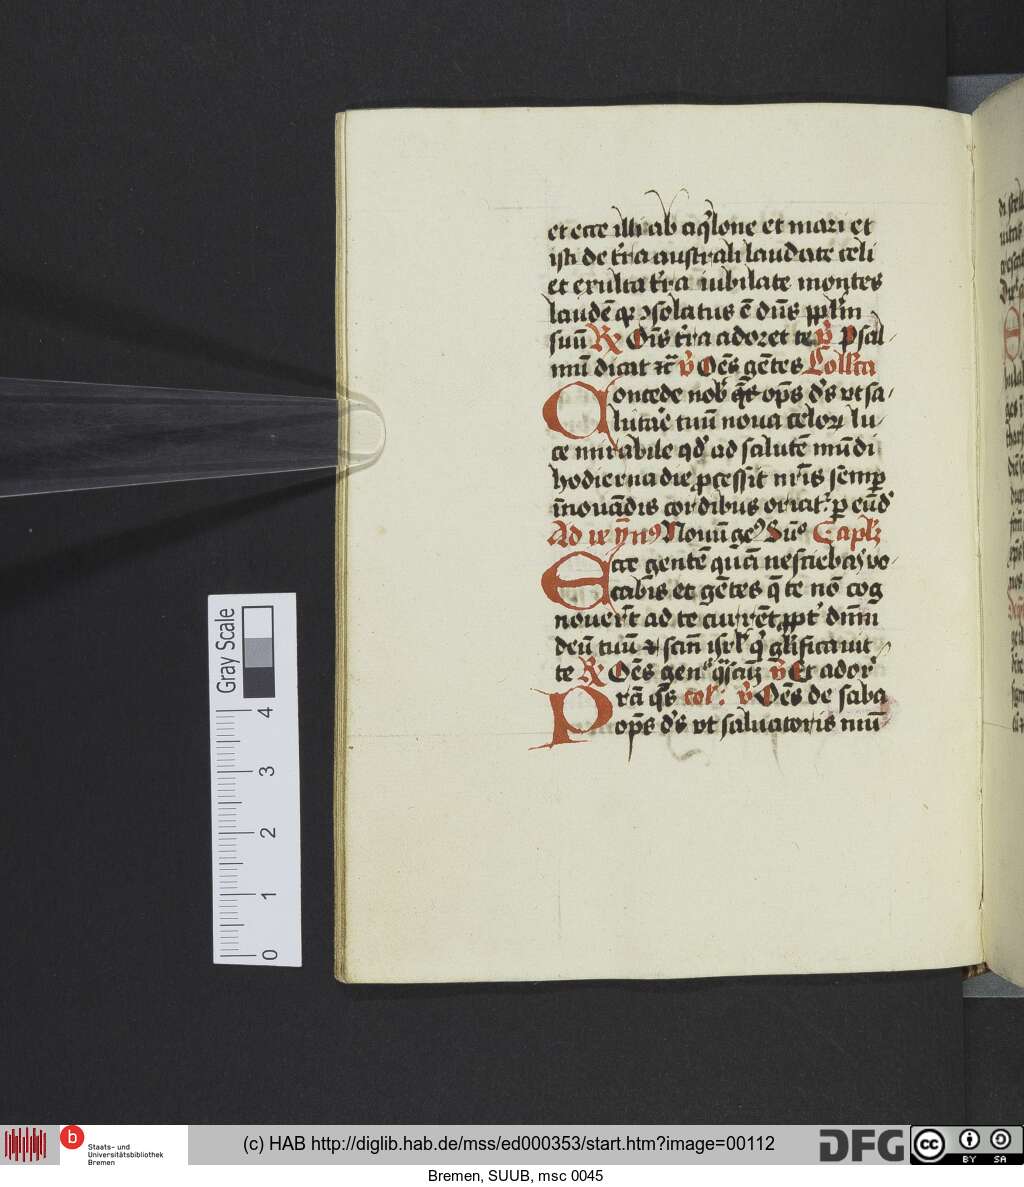 et ecce illi ab aq̇lone et mari et
isti de t̾ra australi laudate celi
et exulta t̾ra iubilate montes
laudē qꝛ ↄsolatus ē dn̄s ppl̄m
suū R̷ Om̄s t̾ra adoret te v̾ Psal
mū dicat ⁊c̄ v̾ Oēs gētes Coll̄cta
Concede nob̾ qs̄ op̄s d̾s vt sa
lutar̾ tuū noua celoꝝ lu
ce mirabile qd̾ ad salutē mūdi
hodierna die ꝓcessit nr̄is sēmꝑ
īnouādis cordibus oriat᷑ ꝑ eūd̾
Nouū
Ecce gentē quā nesciebas vo
cabis et gētes q̄ te nō cog
nouer̄t ad te current ꝓpt̾ dn̄m
deū tuū ⁊ scm̄ isrl̾ qͥ gl̾ificauit
te R̷ Oēs v̾ Et ador̾
col: v̾ Oēs de saba
P op̄s d̾s vt saluatoris mū
Gray Scale
4
3
2
1
0
b
Staats- und
Universitätsbibliothek
Bremen
(c) HAB http://diglib.hab.de/mss/ed000353/start.htm?image=00112
DFG
cc
BY SA
Bremen, SUUB, msc 0045